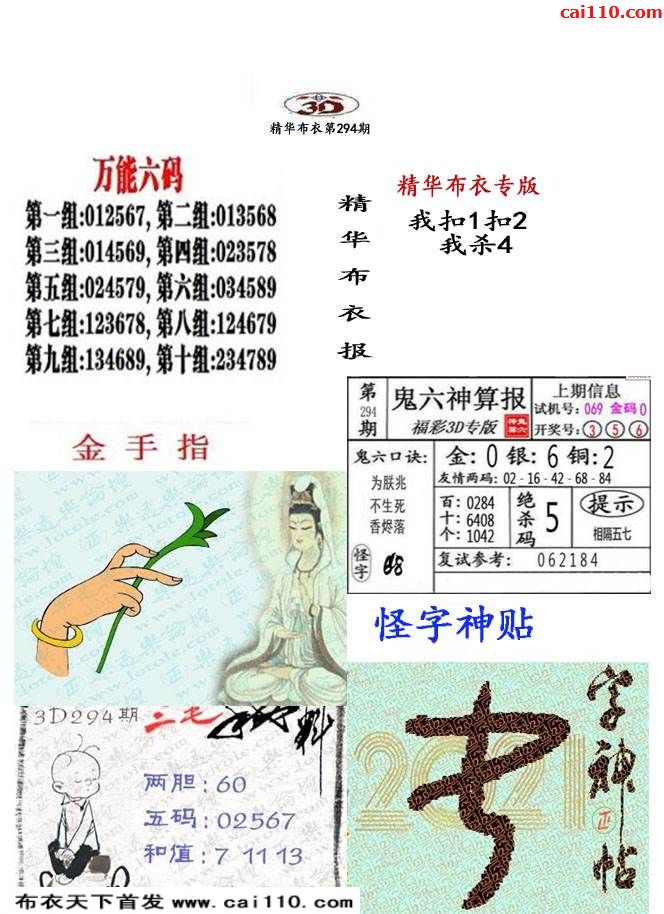 cai110.com
3D
精华布衣第294期
万能六码
第一组:012567,第二组:013568
第三组:014569,第四组:023578
第五组:024579,第六组:034589
第七组:123678,第八组:124679
第九组:134689,第十组:234789
精华布衣报
精华布衣专版
我扣1扣2
我杀4
金手指
第294期
鬼六神算报
福彩3D专版
上期信息
试机号:069 金码0
开奖号:3 5 6
鬼六口诀:
为朕兆
不生死
香烬落
怪字
金:0 银:6 铜:2
友情两码:02-16-42-68-84
百:0284
十:6408
个:1042
绝杀码 5
提示
相隔五七
复试参考: 062184
怪字神贴
3D294期
三毛
两胆:60
五码:02567
和值:7 11 13
2021
字神帖
正
布衣天下首发 www.cai110.com